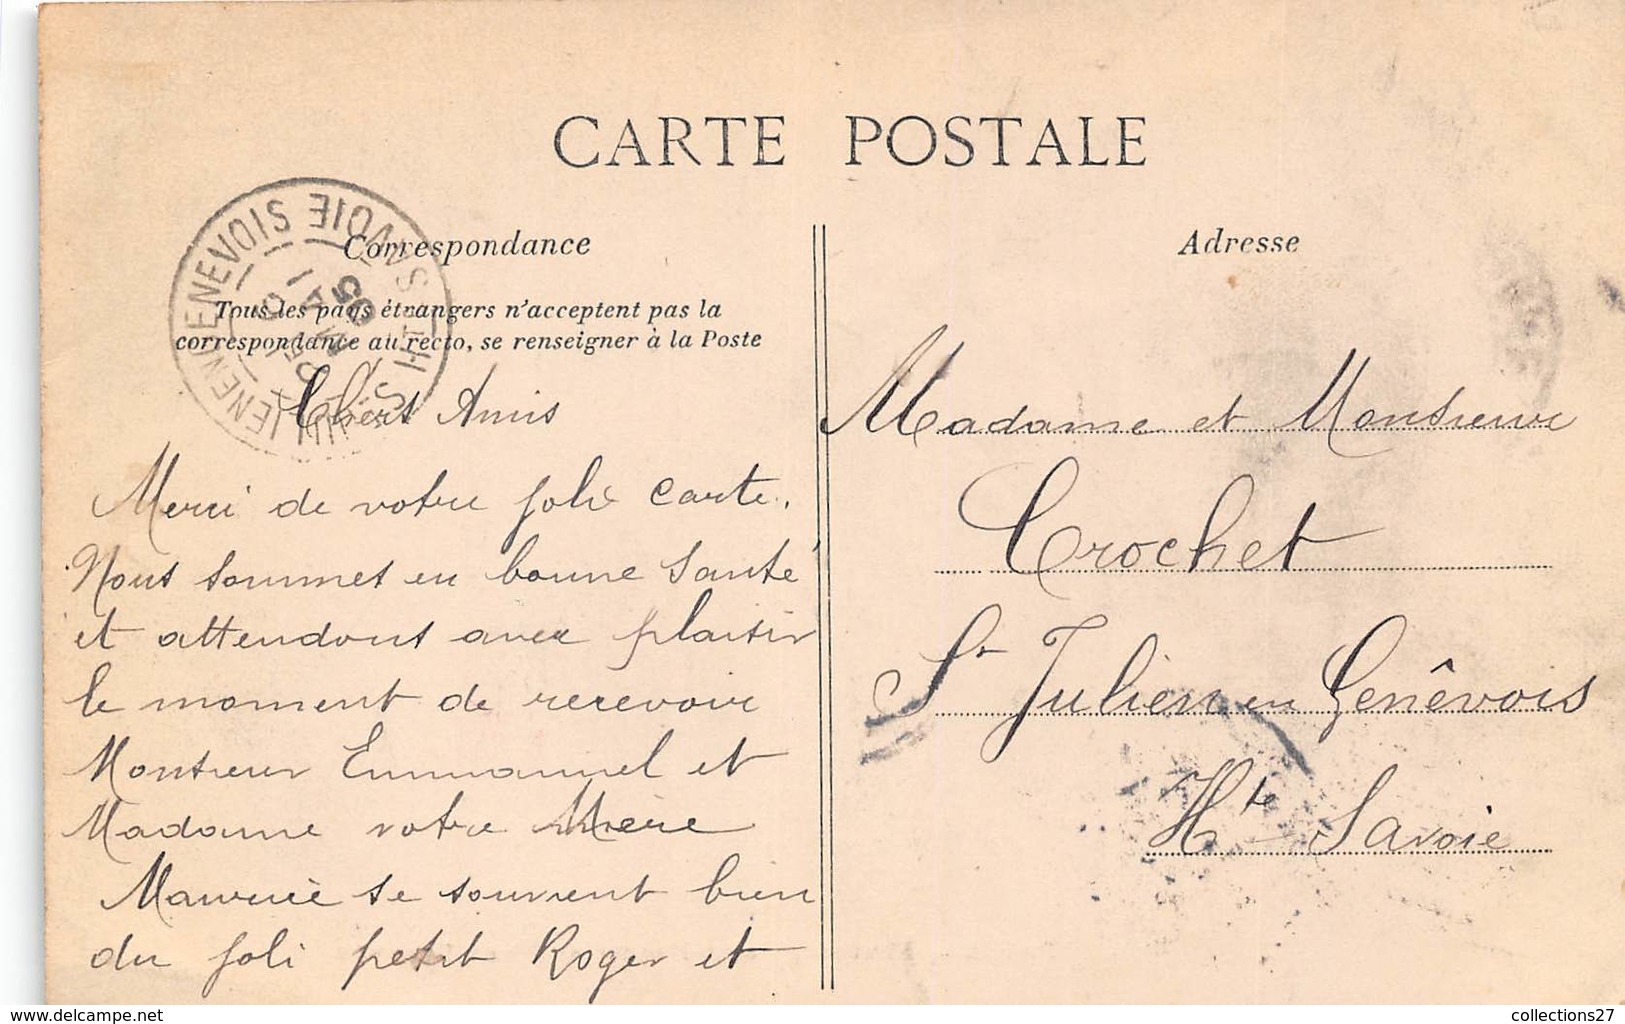 CARTE POSTALE
Correspondance
Tous les pays étrangers n'acceptent pas la
correspondance au recto, se renseigner à la Poste
Chers Amis
Merci de votre jolie carte.
Nous sommes en bonne santé
et attendons avec plaisir
le moment de recevoir
Monsieur Emmanuel et
Madame votre Mère
Maurice se souvient bien
du joli petit Roger et
Adresse
Madame et Monsieur
Crochet
St Julien en Genêvois
Hte Savoie
www.delcampe.net
collections27